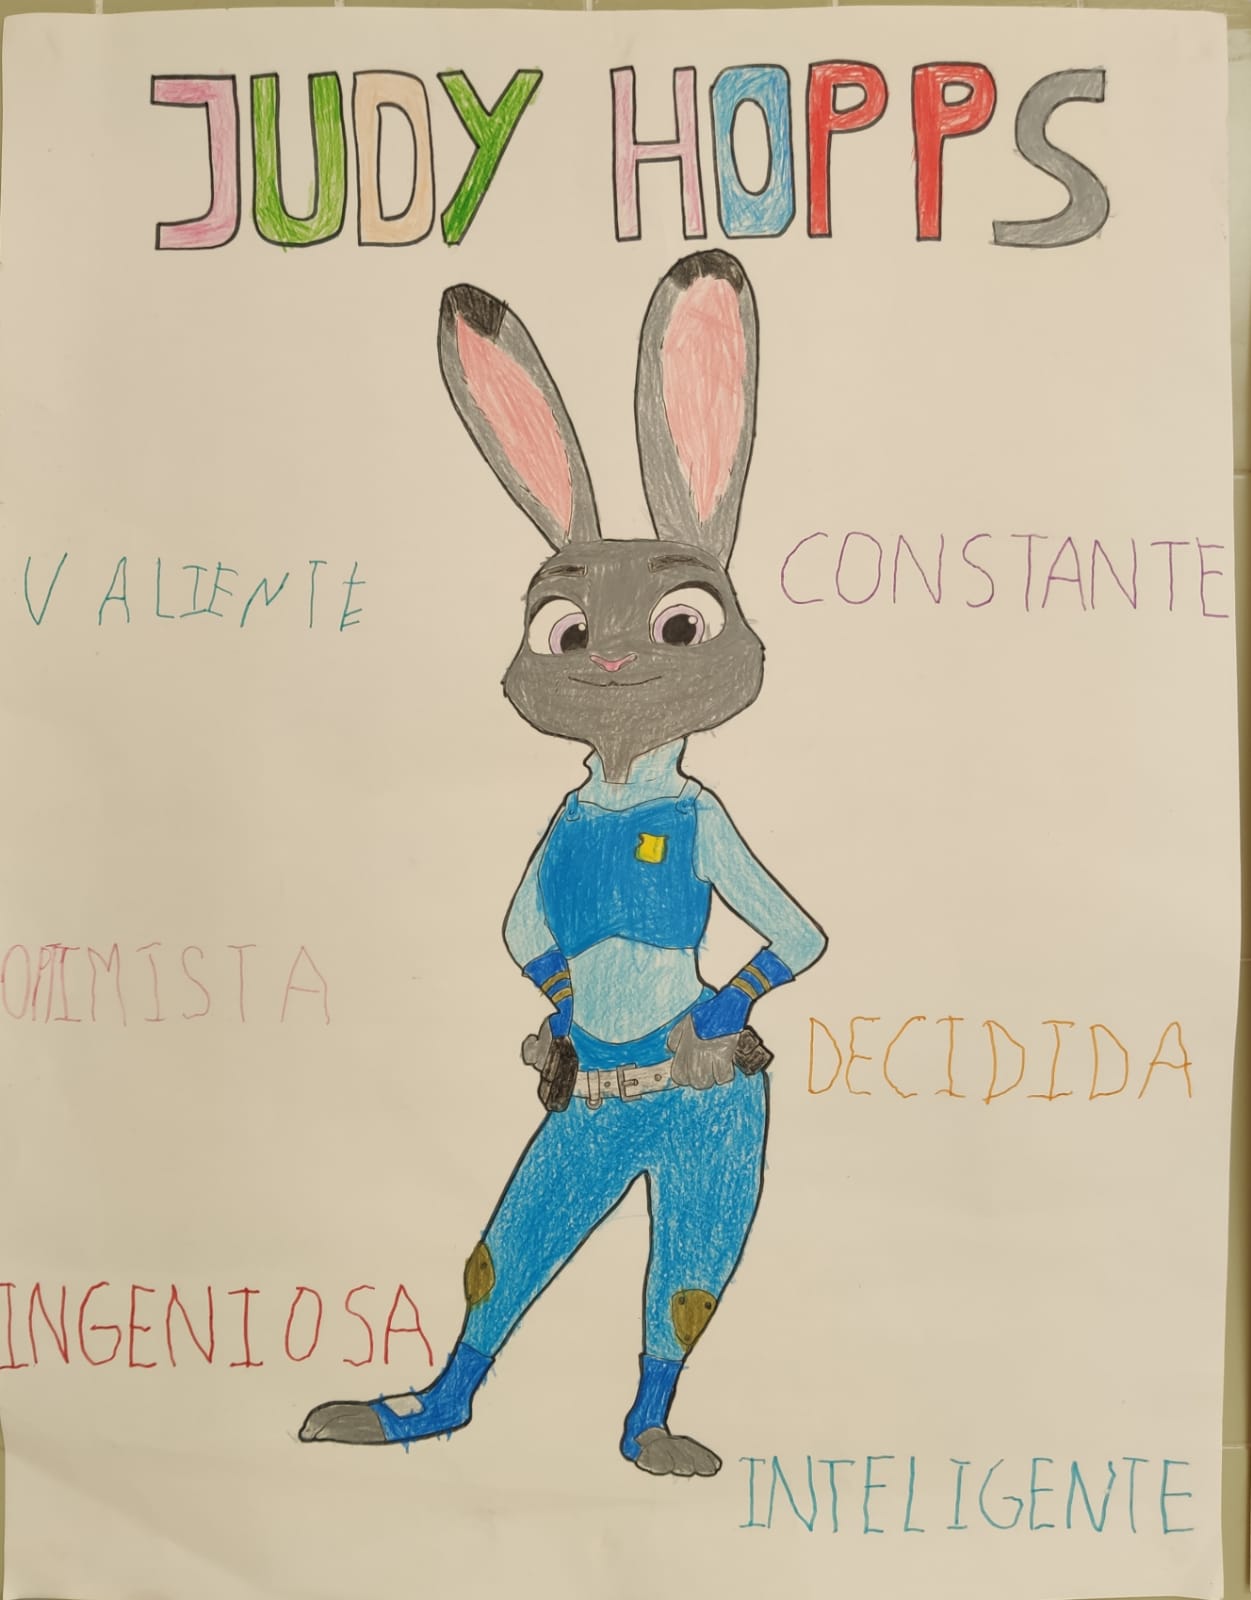 JUDY HOPPS
VALIENTE
CONSTANTE
OPTIMISTA
DECIDIDA
INGENIOSA
INTELIGENTE